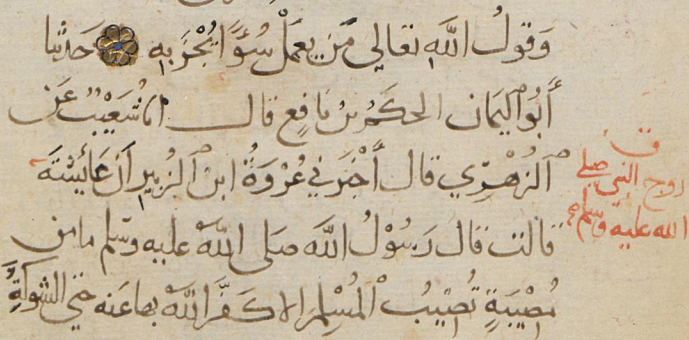 وَقَوْلُ اللَّهِ تعالى مَن يعمَلْ سُوءًا يُجْزَ بِهِ حَدَّثَنا
أَبُو اليَمَانِ الحكَمُ بْنُ نَافِعٍ قال أنا شُعَيْبٌ عَن
الزُّهْرِيِّ قال أَخْبَرَني عُرْوَةُ ابنُ الزُّبيرِ أنَّ عَائِشَةَ
قالت قال رَسُوْلُ اللَّه صَلى اللَّهُ عليه وسَلم ما من
مُصِيْبَةٍ تُصِيْبُ المُسْلِمَ إلا كَفَّرَ اللَّهُ بها عَنه حَتى الشوكَةِ
ق
زوج النبي صلى
الله عليه وسلم